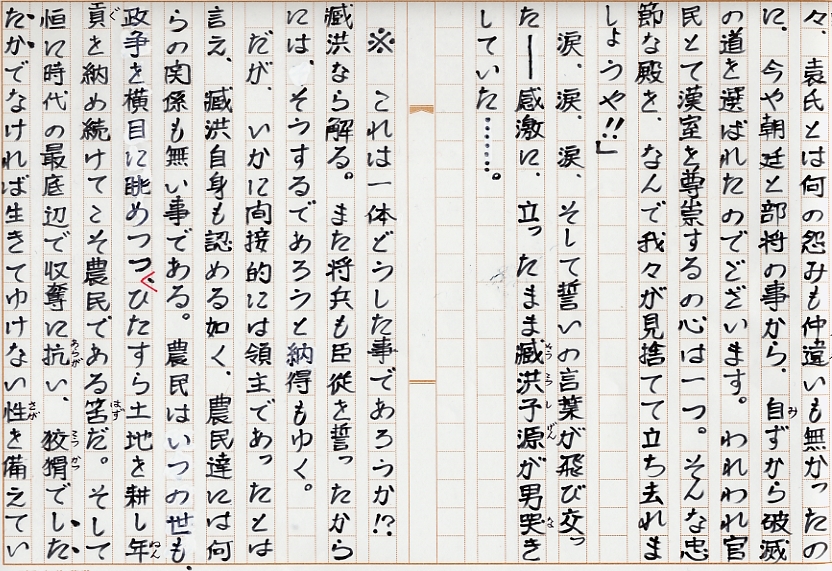 々、袁氏とは何の怨みも仲違いも無かったの
に、今や朝廷と部将の事から、自ずから破滅
の道を選ばれたのでございます。われわれ官
民とて漢室を尊崇するの心は一つ。そんな忠
節な殿を、なんで我々が見捨てて立ち去れま
しょうや!!」
涙、涙、涙、そして誓いの言葉が飛び交っ
た──感激に、立ったまま臧洪子源が男哭き
していた……。
※　これは一体どうした事であろうか!?
臧洪なら解る。また将兵も臣従を誓ったから
には、そうするであろうと納得もゆく。
だが、いかに間接的には領主であったとは
言え、臧洪自身も認める如く、農民達には何
らの関係も無い事である。農民はいつの世も、
政争を横目に眺めつつ、ひたすら土地を耕し年
貢を納め続けてこそ農民である筈だ。そして
恒に時代の最底辺で収奪に抗い、狡猾でした
たかでなければ生きてゆけない性を備えてい